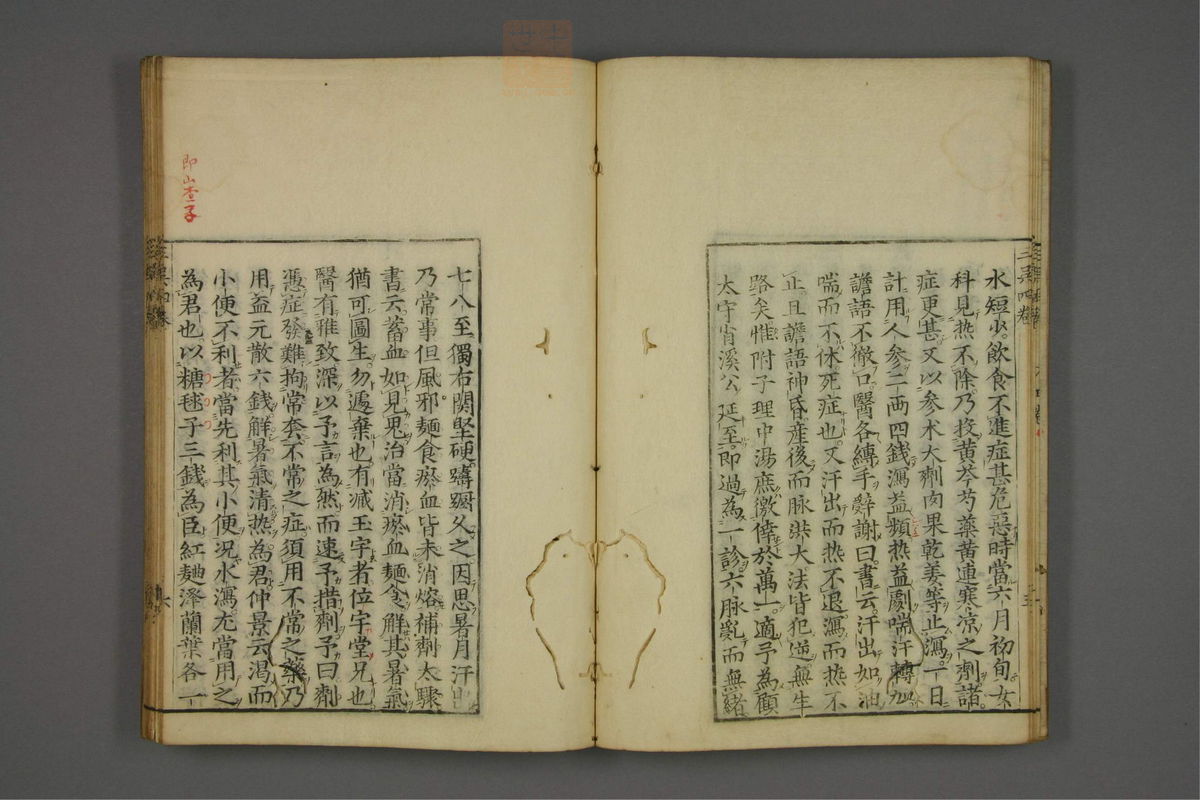 水短少飲食不進症甚危惡時當六月初旬女
科見热不除乃投黃芩芍藥黃連寒凉之劑諸
症更甚又以参朮大劑肉果乾姜等止瀉一日
計用人参二兩四錢瀉益頻热益劇喘汗轉加
譫語不徹口醫各縛手辭謝曰書云汗出如油
喘而不休死症也又汗出而热不退瀉而热不
止且譫語神昏産後而脉洪大法皆犯逆無生
路矣惟附子理中湯庶徼倖於萬一適予為顧
太守肖溪公延至即過為一診六脉亂而無緒
七八至獨右関堅硬躊躇久之因思暑月汗出
乃常事但風邪麺食瘀血皆未消熔補劑太驟
書云蓄血如見鬼治當消瘀血麺食解其暑氣
猶可圖生勿遽棄也有臧玉宇者位宇堂兄也
醫有雅致深以予言為然而速予措劑予曰劑
憑症發難拘常套不常之症須用不常之藥乃
用益元散六錢解暑氣清热為君仲景云渴而
小便不利者當先利其小便况水瀉尤當用之
為君也以糖毬子三錢為臣紅麯澤蘭葉各一
即山查子